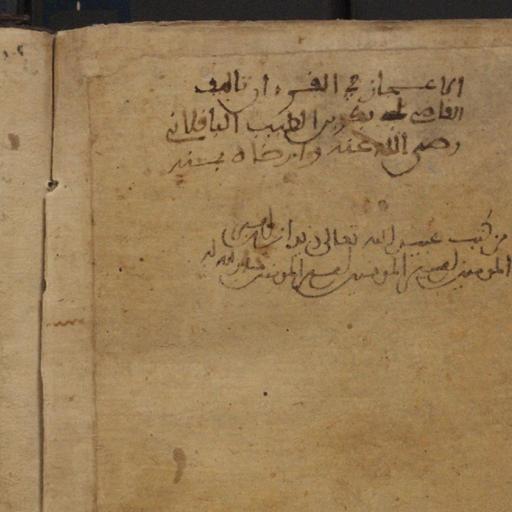 الاعجاز في القرءان تاليف
القاضي ابي بكر بن الطيب الباقلاني
رضي الله عنه وارضاه بمنه
من كتب عبيد الله تعالى زيدان امير
المومنين ابن امير المومنين ابن امير المومنين خلد الله له